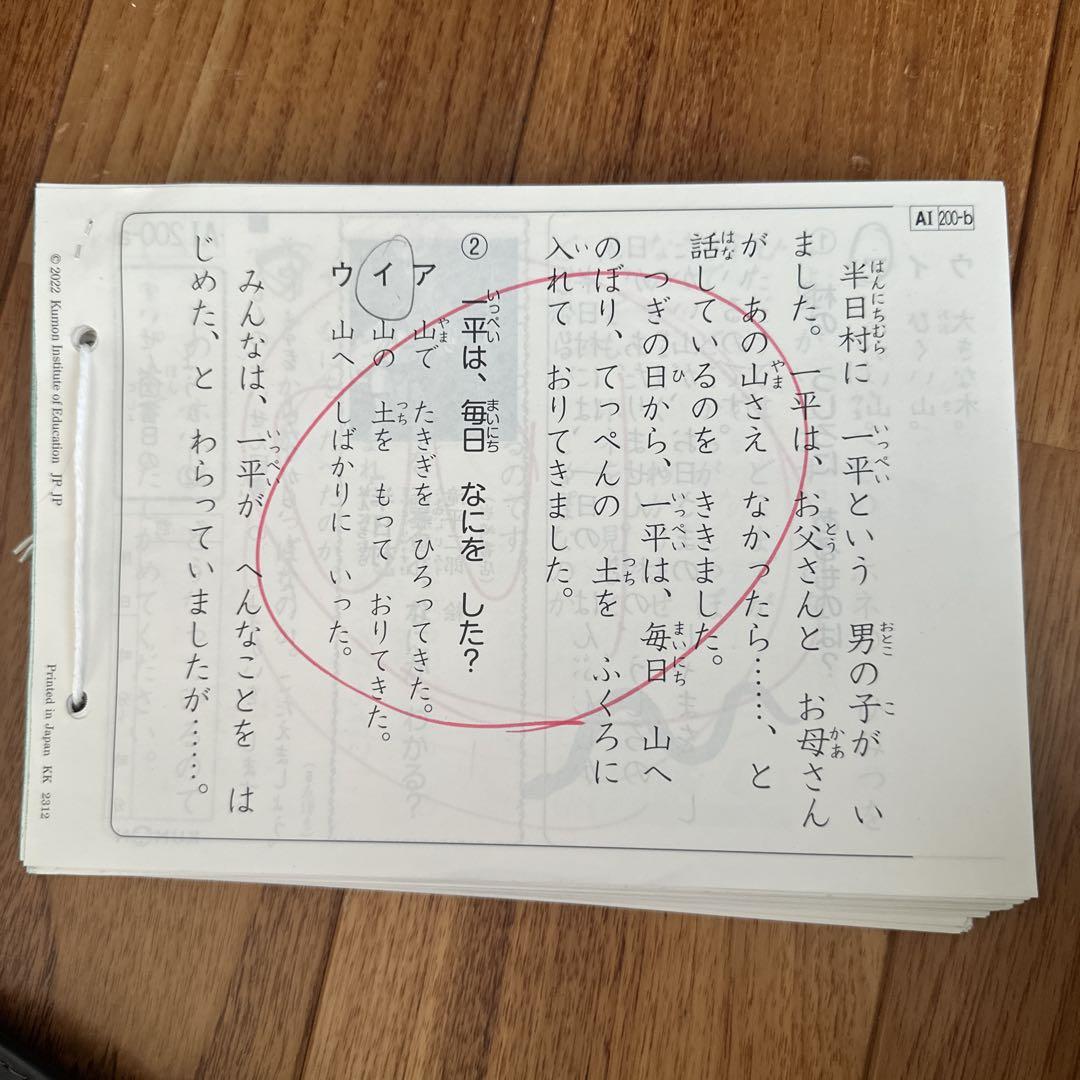 AI 200-b
半日村に 一平という 男の子が い
ました。一平は、お父さんと お母さん
が あの山さえ なかったら……、と
話しているのを ききました。
つぎの日から、一平は、毎日 山へ
のぼり、てっぺんの 土を ふくろに
入れて おりてきました。
② 一平は、毎日 なにを した?
ア 山で たきぎを ひろってきた。
イ 山の 土を もって おりてきた。
ウ 山へ しばかりに いった。
みんなは、一平が へんなことを は
じめた、と わらっていましたが……。
© 2022 Kumon Institute of Education JP JP
Printed in Japan KK 2312